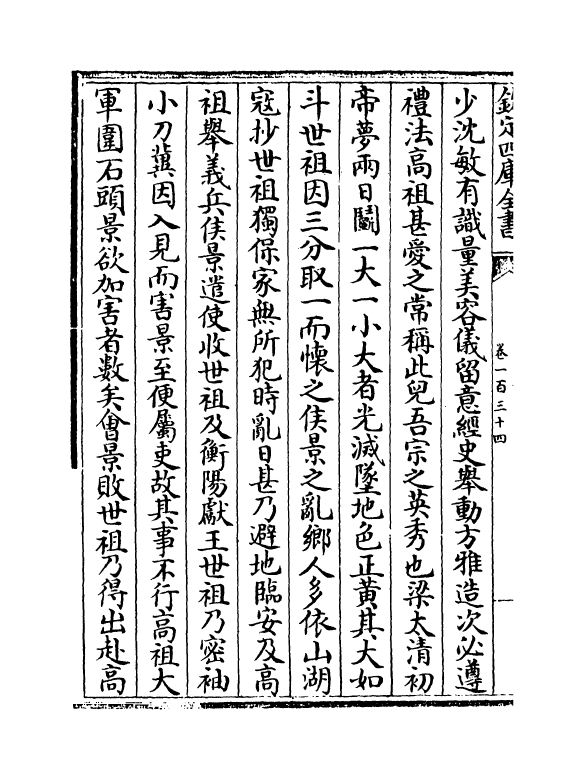 欽定四庫全書
卷一百三十四
少沈敏有識量美容儀留意經史舉動方雅造次必遵
禮法高祖甚愛之常稱此兒吾宗之英秀也梁太清初
帝夢兩日鬭一大一小大者光滅墜地色正黃其大如
斗世祖因三分取一而懷之侯景之亂鄉人多依山湖
寇抄世祖獨保家無所犯時亂日甚乃避地臨安及高
祖舉義兵侯景遣使收世祖及衡陽獻王世祖乃密袖
小刀冀因入見而害景至便屬吏故其事不行高祖大
軍圍石頭景欲加害者數矣會景敗世祖乃得出赴高